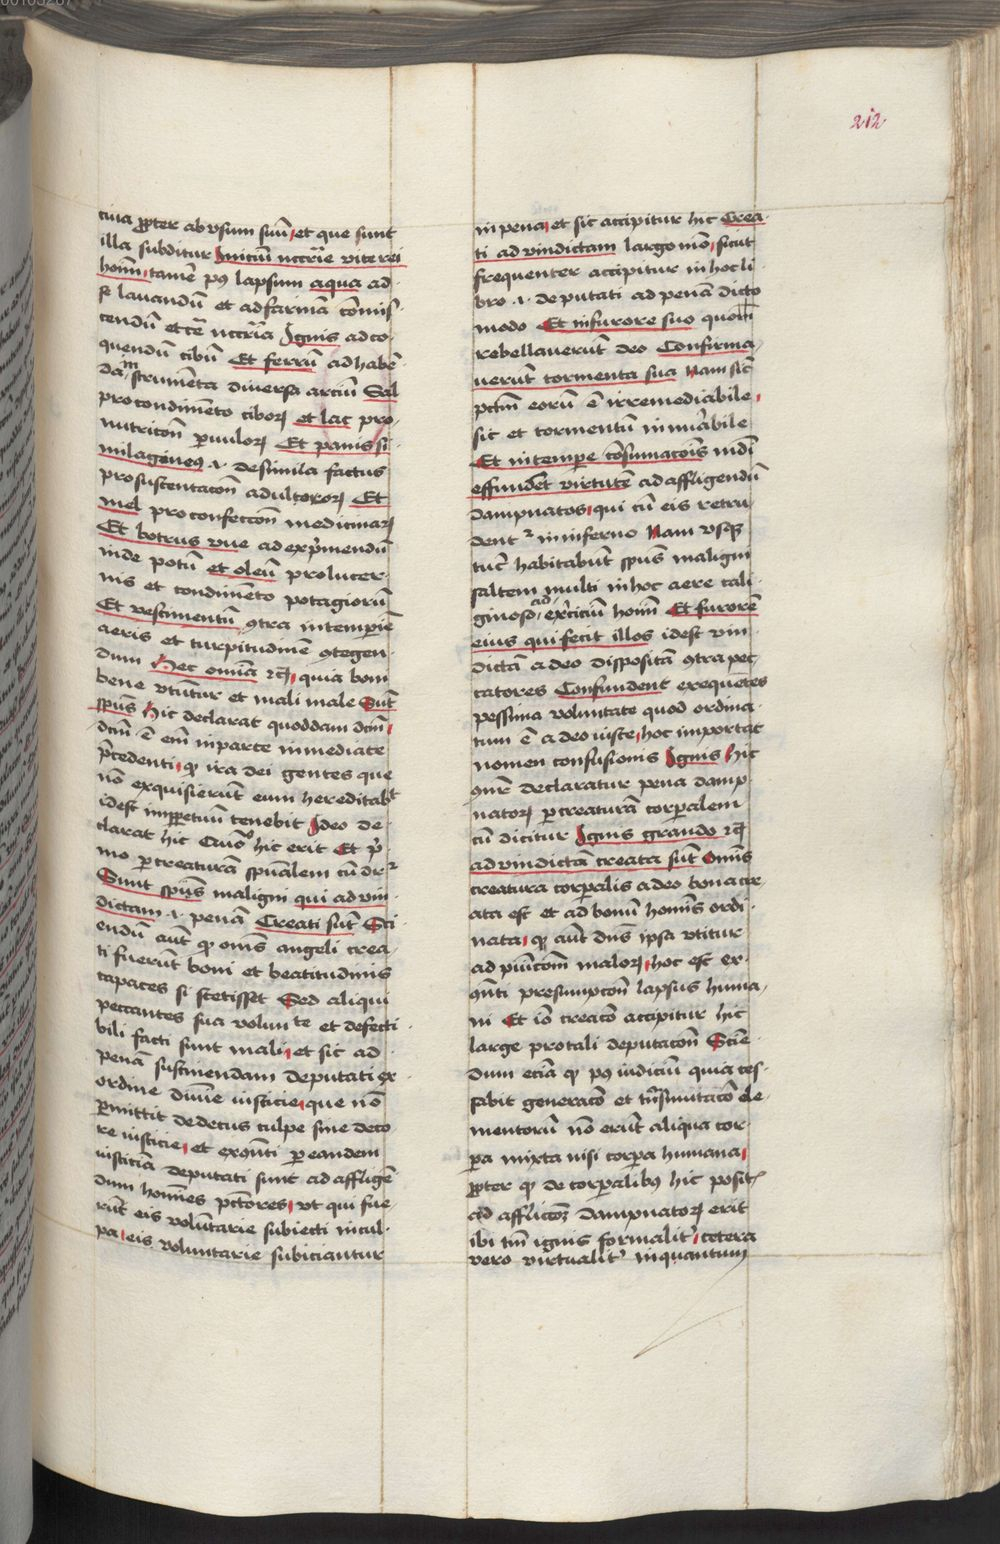 212
tiua propter abvsum suū et que sunt
illa subditur Iniciū nccr̄ie vite rei
homī tamē pꝰ lapsum aqua ad
se lavandū et ad farinā cōmis
cendū et cēt̄ nccr̄ia Ignis ad co
quendū cibū Et ferrū ad habē
da īstrumēta diuersa arciū Sal
pro condimēto ciboꝝ et lac pro
nutricōn puuloꝝ Et panis si
milagineꝰ .i. de simila factus
pro sustentacōn adultoroꝝ Et
mel pro confeccōn medicinaꝝ
Et botrus vue ad exp̄mendū
inde potū et oleū pro lucer
nis et condimēto potagiorū
Et vestimentū ꝯtra intempiē
aeris et turpitudinē ꝯtegen
dum Hec omīa ⁊cꝫ quia boni
bene vtūtur et mali male Sūt
spūs Hic declarat quoddam dcm̄
dcm̄ ē em̄ in parte inmediate
p̄cedenti ꝙ ira dei gentes que
nō exquisierūt eum hereditabt
idest imppetuū tenebit Ideo de
clarat hic Quō hic erit Et pͥ
mo per creaturā spūalem cū drͬ
Sunt spūs maligni qui ad vin
dictam .i. penā Creati sūt Sci
endū aūt ꝙ om̄s angeli crea
ti fuerūt boni et beatitudinis
capaces si stetisset Sed aliqui
peccantes sua volunte et defecti
bili facti sunt mali et sic ad
penā sustinendam deputati ex
ordine diuīe iusticie que nō
ꝑmittit dedecus culpe sine deco
re iusticie et exꝯn̄ti ꝑ eandem
iusticiā deputati sunt ad affligē
dum hom̄nes pctōres vt qui fue
rūt eis volūtarie subiecti in cul
pa eis volūtarie subiciantur
in pena et sic accipitur hic Crea
ti ad vindictam largo mō sicut
frequenter accipitur in hoc li
bro .i. deputati ad penā dicto
modo Et in furore suo quom̄
rebellauerūt deo Confirma
uerūt tormenta sua Nam sic̄
pctm̄ eorū ē irremediabile
sic et tormentū inmīabile
Et in tempe cōsumacōis nīdi
effundēt virtutē ad affligendū
dampnatos qui cū eis retru
denͬ in inferno Nam vsqꝫ
tūc habitabūt spūs maligni
saltem multi in hoc aere cali
ginoso ad exercitiū homī Et furorē
eius qui fecit illos idest vin
dictā a deo dispositā ꝯtra pec
catores Confundent exequētes
pessima voluntate quod ordina
tum ē a deo iuste hoc importat
nomen confusionis Ignis Hic
ꝯn̄r declaratur pena damp
natoꝝ per creaturā corpalem
cū dicitur Ignis grando ⁊cꝫ
ad vindictā creata sūt Omīs
creatura corpalis a deo bona cre
ata est et ad bonū homīs ordi
nata ꝙ aūt dn̄s ipsa vtitur
ad pūicōm maloꝝ hoc est ex
ꝯn̄ti presumpcōn lapsus huma
ni Et iō creacō accipitur hic
large pro tali deputacōn Sciē
dum eciā ꝙ pꝰ iudiciū quia ces
sabit generacō et trāsmutacō ele
mentorū nō erūt aliqua cor
pa mixta nisi corpa humana
ꝓpter ꝙ de corpalibꝰ hic positͭ
ad afflicōeꝫ dampnatoꝝ erit
ibi tm̄ ignis formalitͬ cetera
vero virtualitͬ inquantum